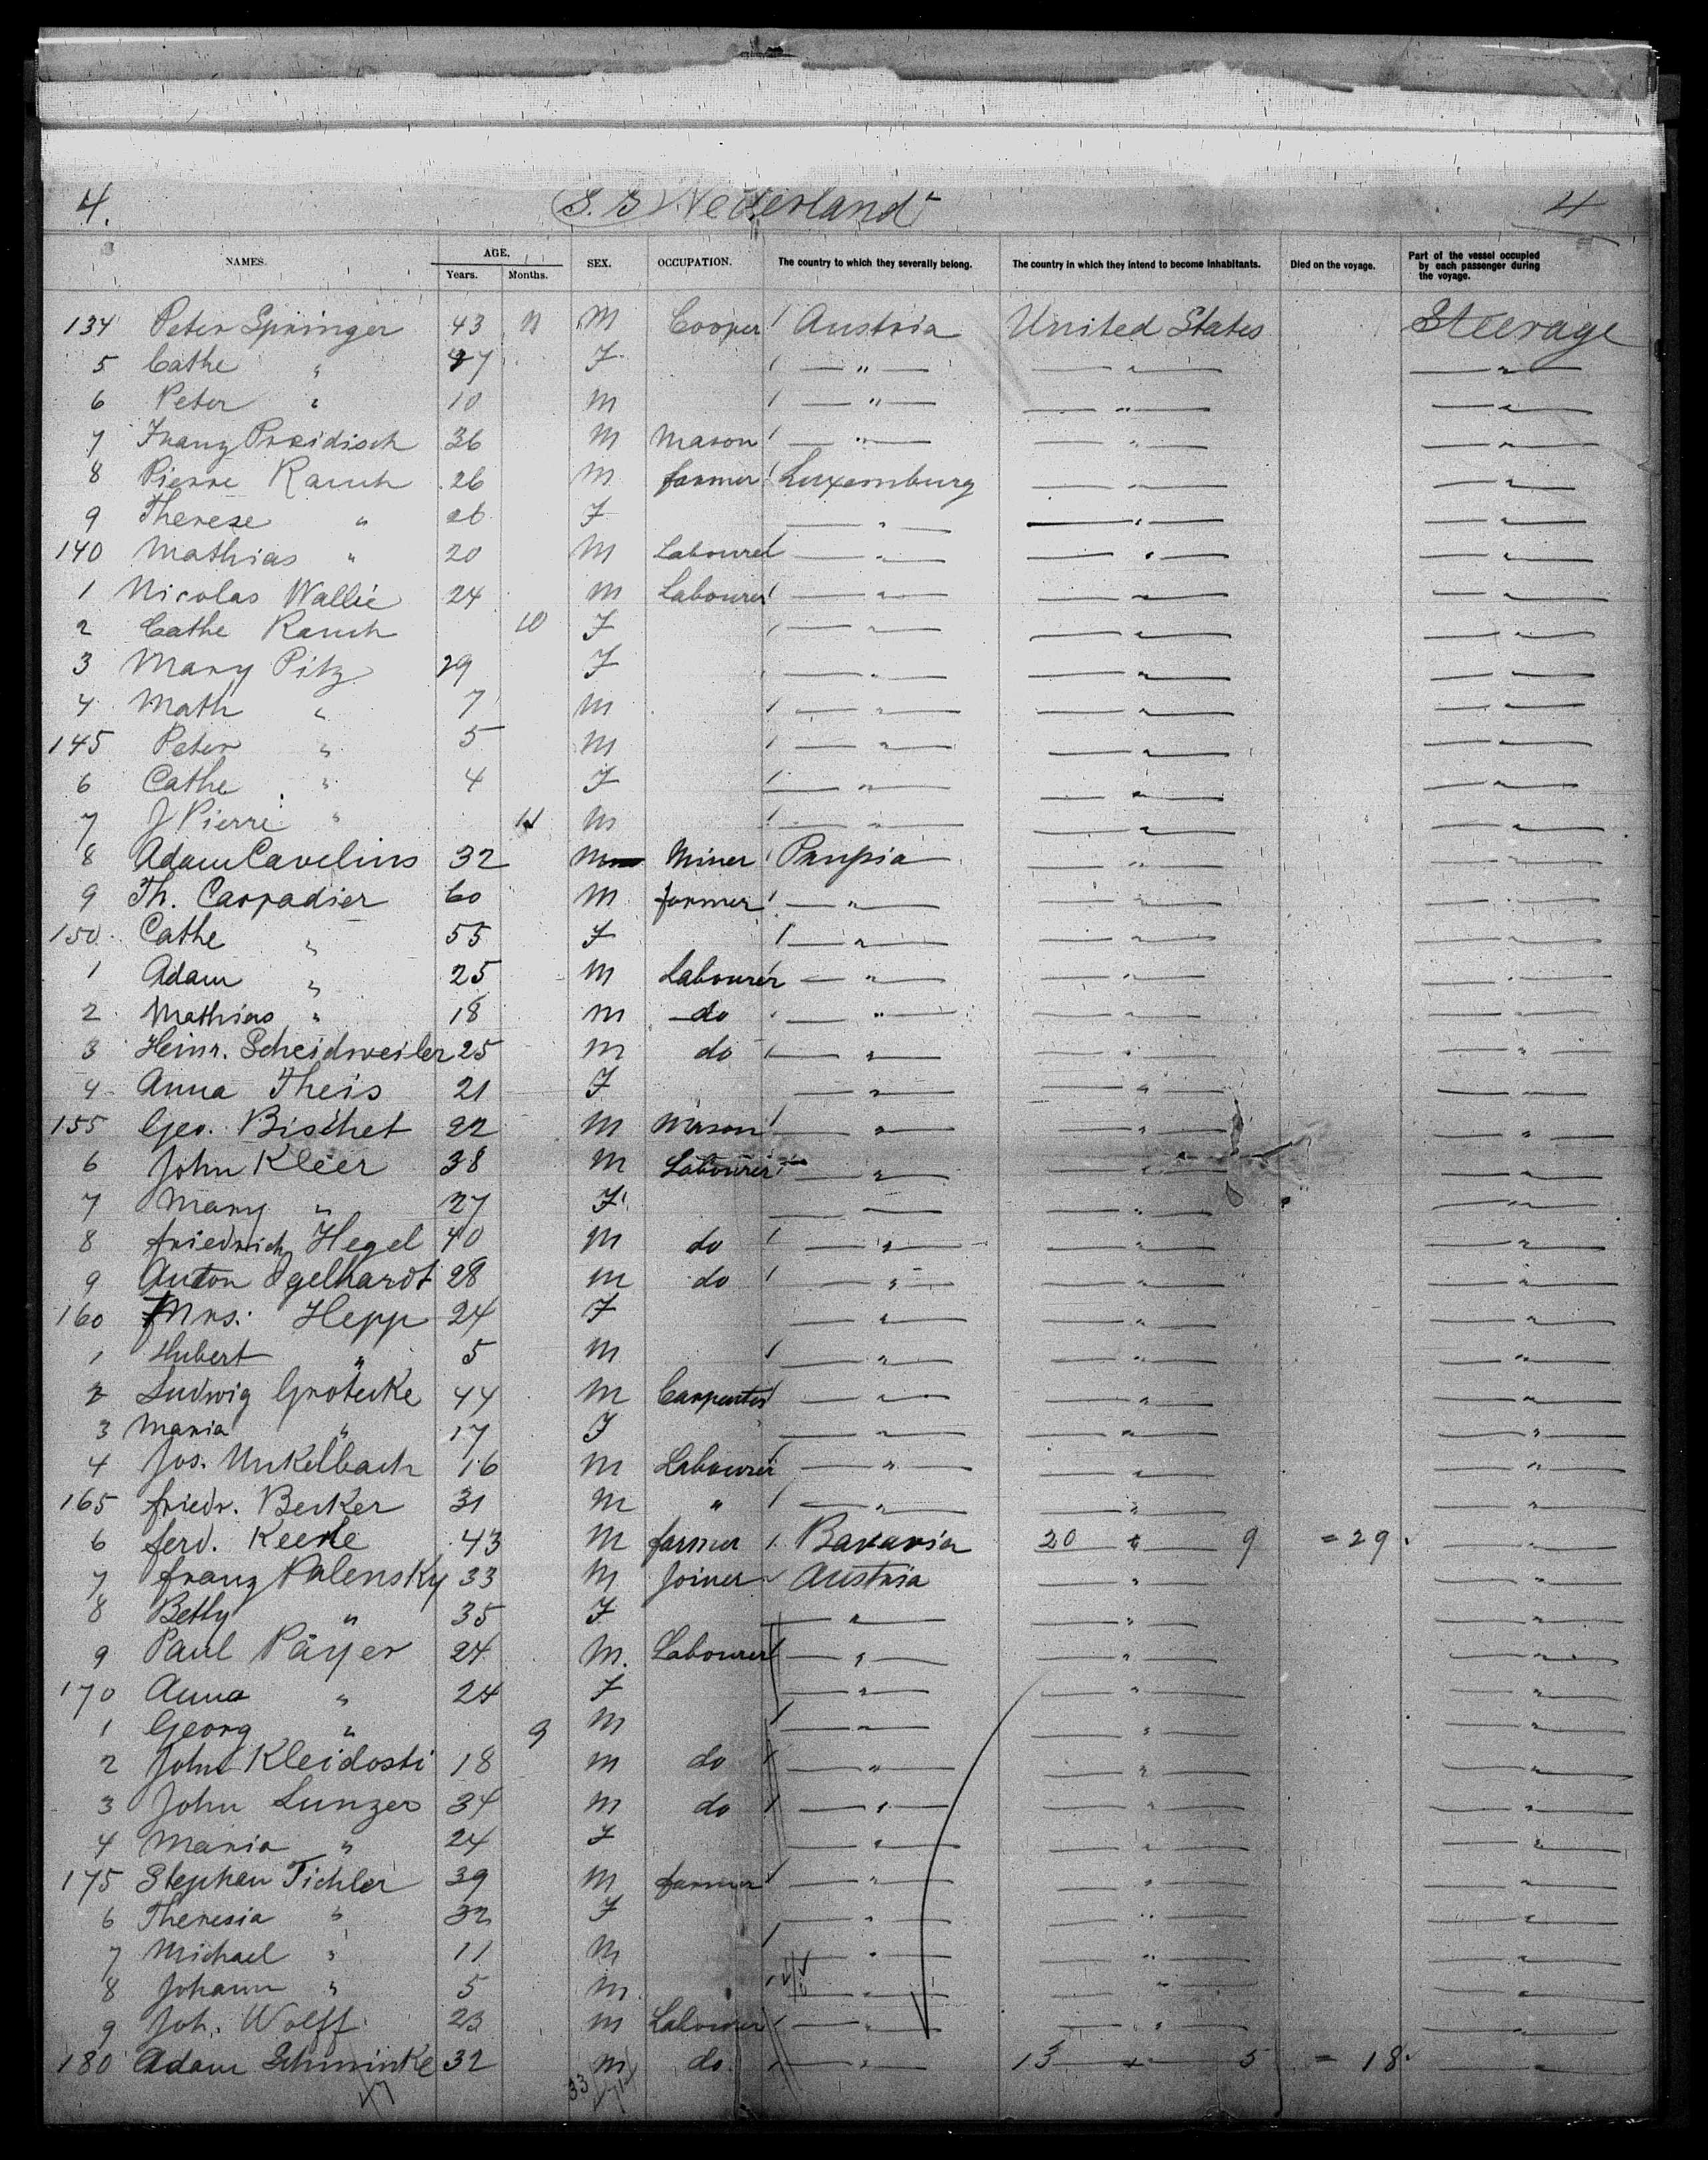 4. S.S Nederland 4
NAMES. AGE. Years. Months. SEX. OCCUPATION. The country to which they severally belong. The country in which they intend to become inhabitants. Died on the voyage. Part of the vessel occupied by each passenger during the voyage.
134 Peter Springer 43 M Cooper / Austria United States Steerage
5 Cathe " F / — " — — " — — " —
6 Peter " 10 M / — " — — " — — " —
7 Franz Preidisch 36 M Mason / — " — — " — — " —
8 Pierre Rauch 26 M farmer / Luxemburg — " — — " —
9 Therese " 26 F — " — — " — — " —
140 Mathias " 20 M Labourer — " — — " — — " —
1 Nicolas Wallie 24 M Labourer / — " — — " — — " —
2 Cathe Rauch 10 F / — " — — " — — " —
3 Mary Pitz 29 F — " — — " — — " —
4 Math " 7 M / — " — — " — — " —
145 Peter " 5 M / — " — — " — — " —
6 Cathe " 4 F / — " — — " — — " —
7 J Pierre " 11 M / — " — — " — — " —
8 Adam Cavelius 32 M Miner / Prussia — " — — " —
9 Th. Carradier 60 M farmer / — " — — " — — " —
150 Cathe " 55 F / — " — — " — — " —
1 Adam " 25 M Labourer — " — — " — — " —
2 Mathias " 18 M do — " — — " — — " —
3 Heinr. Scheidweiler 25 M do / — " — — " — — " —
4 Anna Theis 21 F — " — — " — — " —
155 Geo. Bischet 22 M Mason / — " — — " — — " —
6 John Kleer 38 M Labourer — " — — " — — " —
7 Mary " 27 F — " — — " — — " —
8 friedrich Hegel 40 M do / — " — — " — — " —
9 Anton Ogelhardt 28 M do / — " — — " — — " —
160 Mrs. Hepp 24 F — " — — " — — " —
1 Hubert " 5 M / — " — — " — — " —
2 Ludwig Grotecke 44 M Carpenter / — " — — " — — " —
3 Maria " 17 F — " — — " — — " —
4 Jos. Unkelbach 16 M Labourer — " — — " — — " —
165 friedr. Becker 31 M " / — " — — " — — " —
6 ferd. 43 M farmer / Bavaria 20 + 9 = 29 — " —
7 franz Palensky 33 M Joiner Austria — " — — " —
8 Betty " 35 F — " — — " — — " —
9 Paul Payer 24 M. Labourer / — " — — " — — " —
170 Anna " 24 F — " — — " — — " —
1 Georg " 9 M / — " — — " — — " —
2 John Kleidosti 18 M do / — " — — " — — " —
3 John Lunzer 34 M do / — " — — " — — " —
4 Maria " 24 F — " — — " — — " —
175 Stephan Tichler 39 M farmer / — " — — " — — " —
6 Theresia " 32 F — " — — " — — " —
7 Michael " 11 M / — " — — " — — " —
8 Johann " 5 M / — " — — " — — " —
9 Joh. Wolff 23 M Labourer / — " — — " — — " —
180 Adam Schminke 32 M do. / — " — 13 + 5 = 18 — " —
33